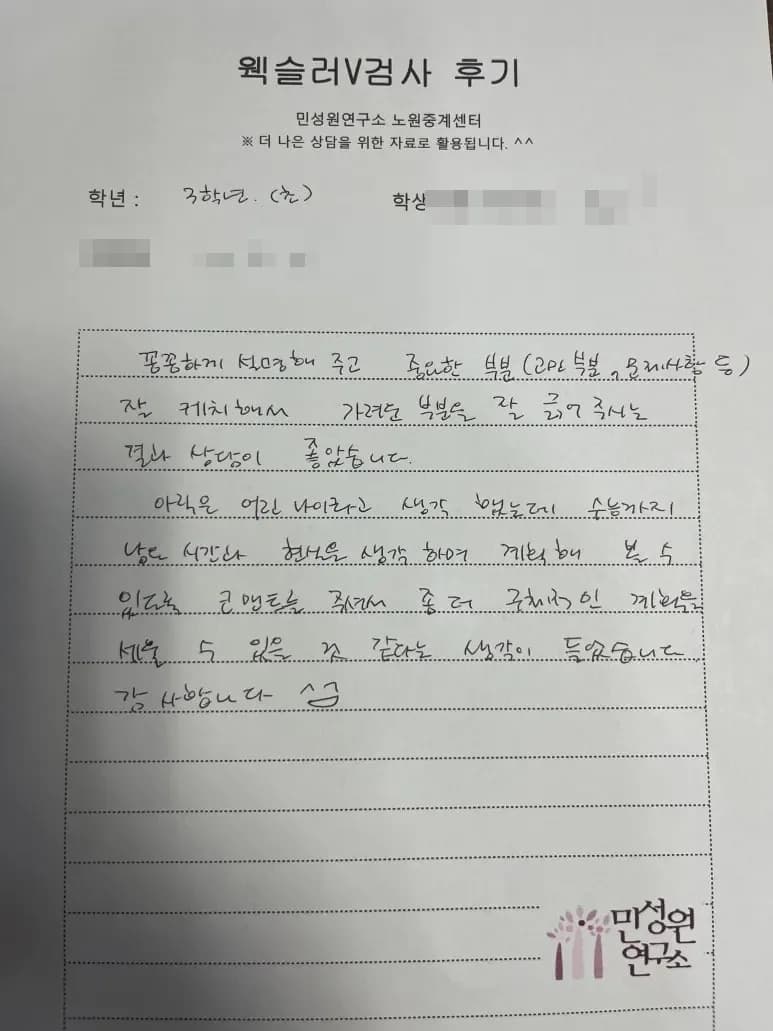 웩슬러V검사 후기
민성원연구소 노원중계센터
※ 더 나은 상담을 위한 자료로 활용됩니다. ^^
학년 : 3학년. (초) 학생
꼼꼼하게 설명해 주고 중요한 부분(고민 부분, 문제사항 등)
잘 케치해서 가려운 부분을 잘 긁어 주시는
결과 상담이 좋았습니다.
아직은 어린 나이라고 생각 했는데 수능까지
남은 시간과 현실을 생각 하며 계획해 볼 수
있도록 코멘트를 주셔서 좀 더 구체적인 계획을
세울 수 있을 것 같다는 생각이 들었습니다.
감사합니다
민성원
연구소